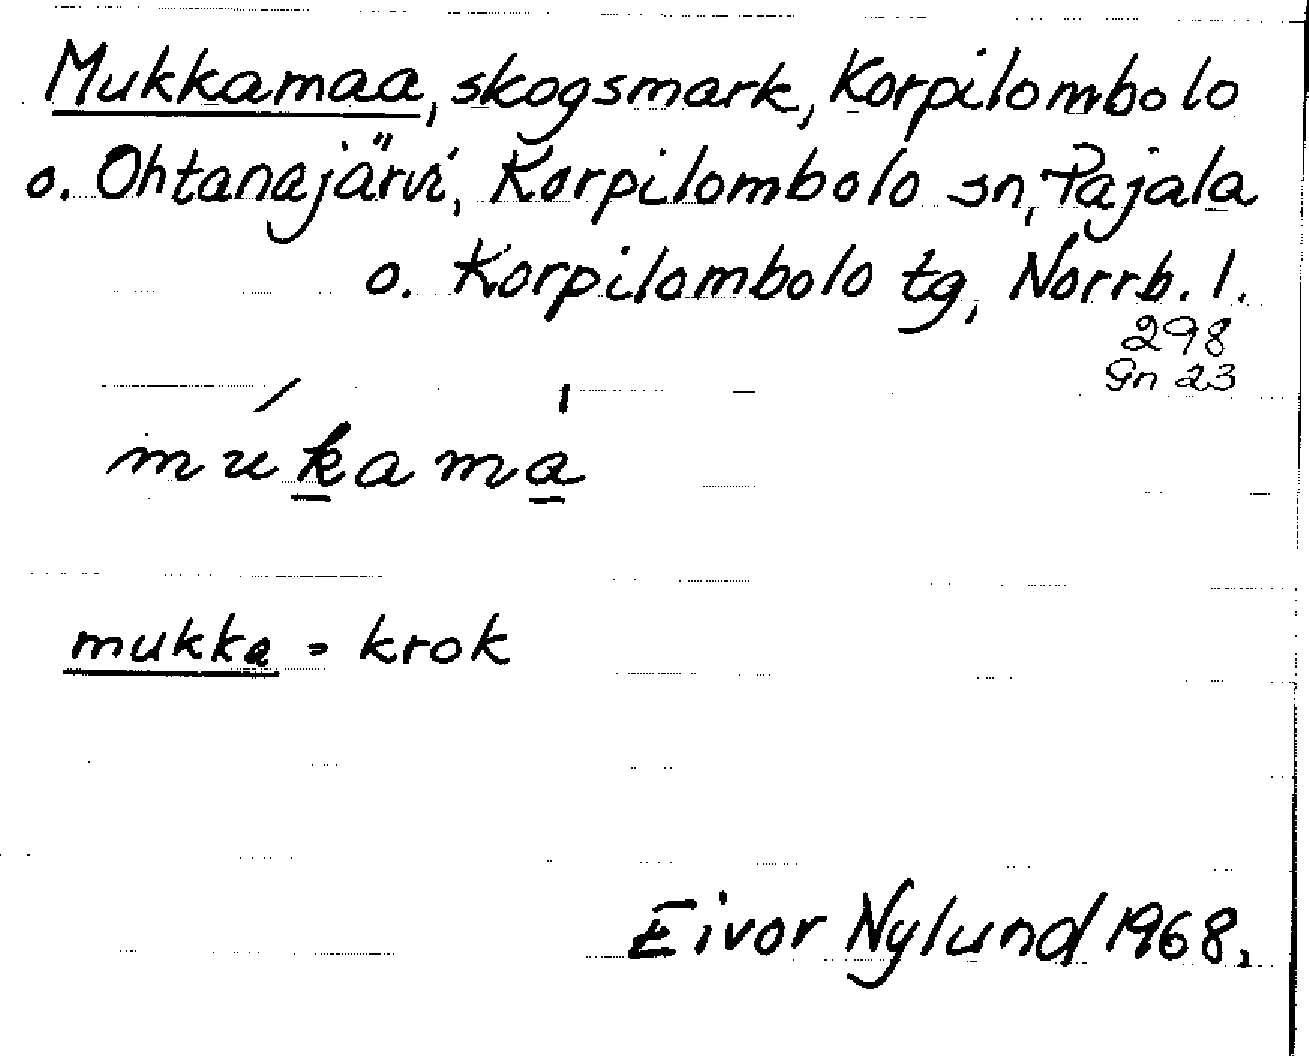 Mukkamaa, skogsmark, Korpilombolo
o. Ohtanajärvi, Korpilombolo sn, Pajala
o. Korpilombolo tg, Norrb. l.
298
Gn 23
múk̲ama̲̍
mukka = krok
Eivor Nylund 1968.